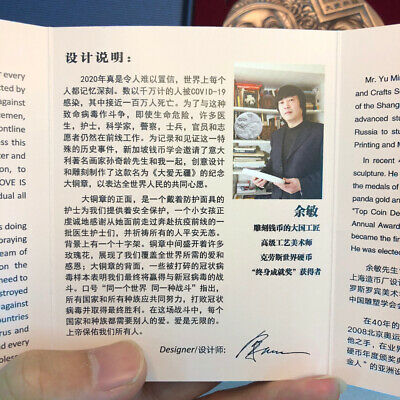 every
ted by
against
cemen,
ontline
ess this
ter and
tion, to
OVE IS
dual all
praying
eam of
need to
stroyed
against
ountries
rus and
bless
设计说明:
2020年真是令人难以置信,世界上每个
人都记忆深刻。数以千万计的人被COVID-19
感染,其中接近一百万人死亡。为了与这种
致命病毒作斗争,即使生命危险,许多医
生,护士,科学家,警察,士兵,官员和志
愿者仍然在前线工作。为记录和见证这一特
殊的历史事件,新加坡钱币学会邀请了意大
利著名画家孙奇龄先生和我一起,创意设计
和雕刻制作了这款名为《大爱无疆》的纪念
大铜章,以表达全世界人民的共同心愿。
大铜章的正面,是一个戴着防护面具的
护士为我们提供着安全保护,一个小女孩正
虔诚地感谢从她面前走过奔赴抗疫前线的一
批医生护士们,并祈祷所有的人平安无恙。
背景上有一个十字架。铜章中间盛开着许多
玫瑰花,展现了我们覆盖全世界所需的爱和
感恩;大铜章的背面,一些被打碎的冠状病
毒样本表明我们最终将赢得与新冠病毒的战
斗。口号“同一个世界 同一种战斗”指出,
所有国家和所有种族应共同努力,打败冠状
病毒并取得最终胜利。在这场战斗中,每个
国家和种族都需要别人的爱。爱是无限的。
上帝保佑我们所有人。
Designer/设计师:
余敏
雕刻钱币的大国工匠
高级工艺美术师
克劳斯世界硬币
“终身成就奖”获得者
Mr. Yu Mi
and Crafts S
of the Shang
advanced stu
Russia to stu
Printing and M
In recent 4
sculpture. He
the medals of
panda gold an
"Top Coin De
Annual Award
became the fir
He was elected
余敏先生
上海造币厂设
罗斯罗宾美术
中国雕塑学会会
在40年的
2008北京奥运
他之手,在业界
硬币年度颁奖典
金人”的亚洲设